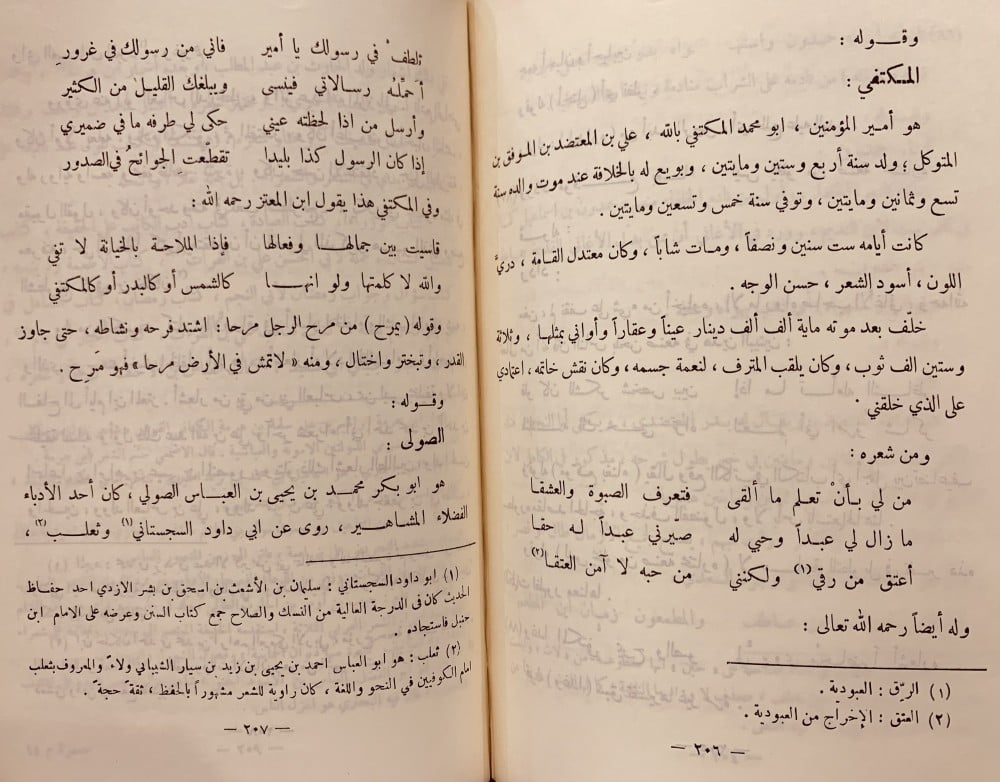 وقـوله :
المكتفي :
هو أمير المؤمنين ، ابو محمد المكتفي بالله ، علي بن المعتضد بن الموفق بن
المتوكل ؛ ولد سنة أربع وستين ومايتين ، وبويع له بالخلافة عند موت والده سنة
تسع وثمانين ومايتين ، وتوفي سنة خمس وتسعين ومايتين .
كانت أيامه ست سنين ونصفاً ، ومات شاباً ، وكان معتدل القامة ، دريَّ
اللون ، أسود الشعر ، حسن الوجه .
خلّف بعد موته ماية ألف ألف دينار عيناً وعقاراً وأواني بمثلها ، وثلاثة
وستين الف ثوب ، وكان يلقب المترف ، لنعمة جسمه ، وكان نقش خاتمه ، اعتمادي
على الذي خلقني .
ومن شعره :
من لي بأنْ تعلم ما ألقى فتعرف الصبوة والعشقا
ما زال لي عبداً وحبي له صيّرني عبداً له حقا
أعتق من رقي (١) ولكنني من حبه لا آمن العتقا (٢)
وله أيضاً رحمه الله تعالى :
(١) الرِّق : العبودية .
(٢) العتق : الإخراج من العبودية .
— ٢٠٦ —
تلطفْ في رسولك يا أمير فاني من رسولك في غرورِ
أحمّلُه رسالاتي فينسى ويبلغك القليل من الكثير
وأرسل من اذا لحظته عيني حكى لي طرفه ما في ضميري
إذا كان الرسول كذا بليدا تقطّعت الجوانحُ في الصدور
وفي المكتفي هذا يقول ابن المعتز رحمه الله :
قاسيت بين جمالها وفعالها فإذا الملاحة بالخيانة لا تفي
والله لا كلمتها ولو انها كالشمس أو كالبدر أو كالمكتفي
وقوله (يمرح) من مرح الرجل مرحا : اشتد فرحه ونشاطه ، حتى جاوز
القدر ، وتبختر واختال ، ومنه « لاتمش في الأرض مرحا » فهو مَرِح .
وقـوله :
الصولى :
هو ابو بكر محمد بن يحيى بن العباس الصولي ، كان أحد الأدباء
الفضلاء المشاهير ، روى عن ابي داود السجستاني (١) وثعلب (٢) ،
(١) ابو داود السجستاني : سليمان بن الأشعث بن اسحق بن بشر الازدي احد حفاظ
الحديث كان في الدرجة العالية من النسك والصلاح جمع كتاب السنن وعرضه على الامام ابن
حنبل فاستجاده .
(٢) ثعلب : هو ابو العباس احمد بن يحيى بن زيد بن سيار الشيباني ولاءً والمعروف بثعلب
امام الكوفيين في النحو واللغة ، كان راوية للشعر مشهوراً بالحفظ ، ثقةً حجةً .
— ٢٠٧ —